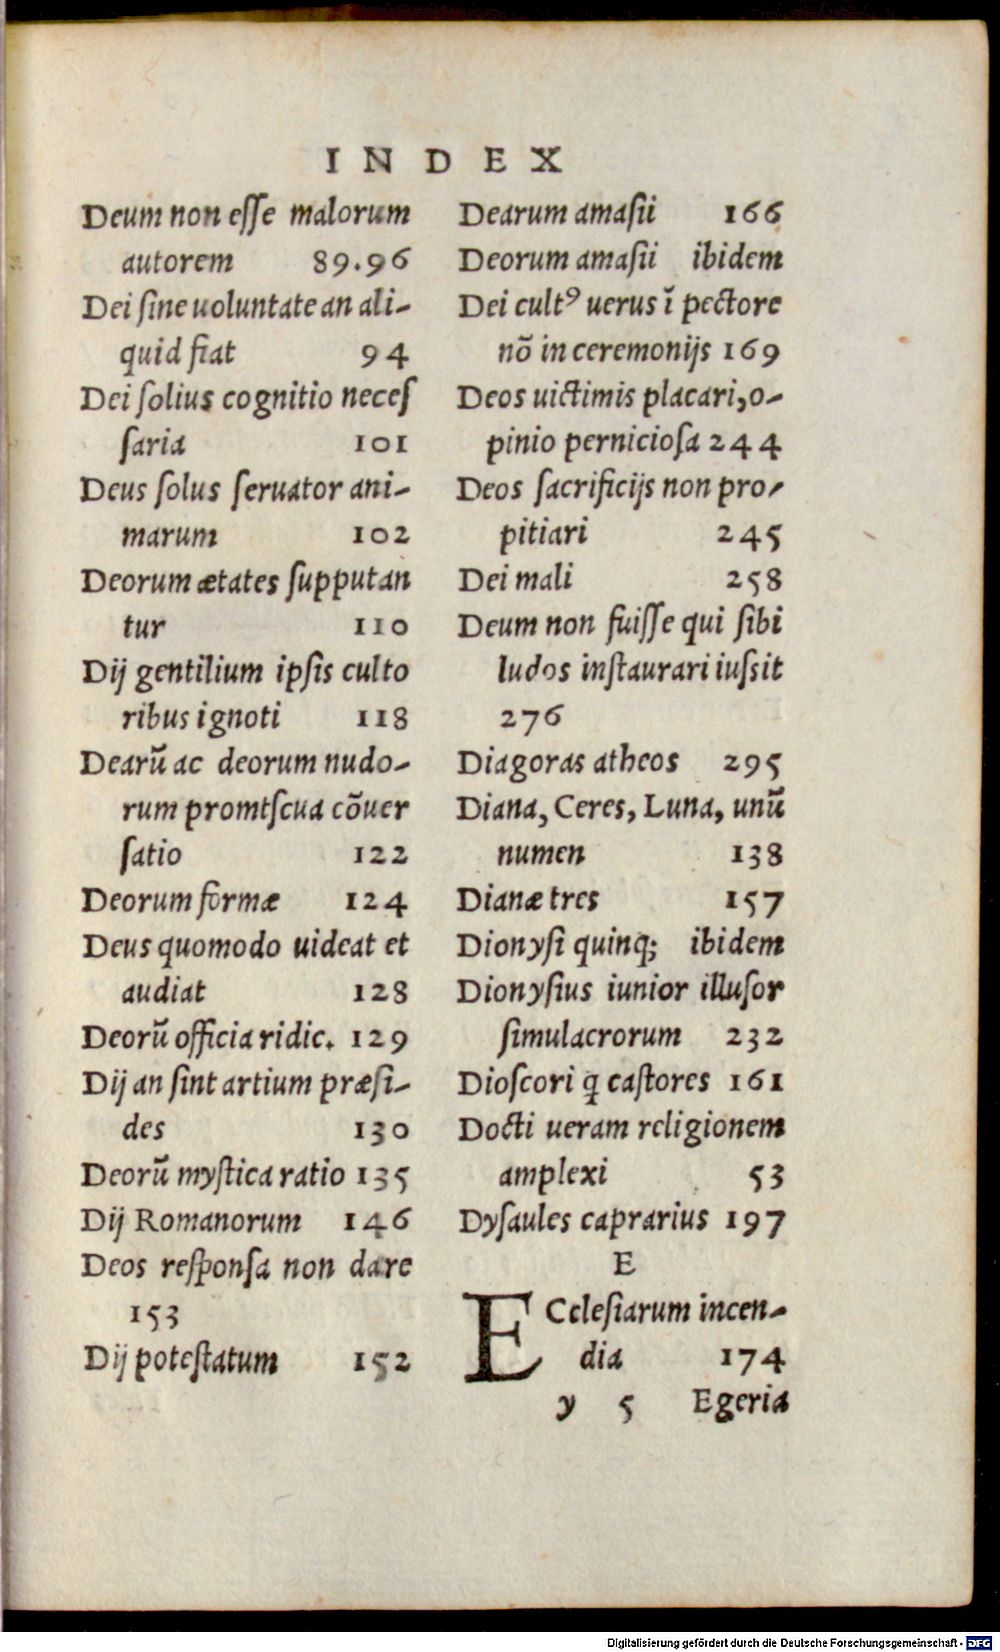 INDEX
Deum non eſſe malorum
autorem 89.96
Dei ſine uoluntate an ali-
quid fiat 94
Dei ſolius cognitio neceſ
ſaria 101
Deus ſolus ſeruator ani-
marum 102
Deorum ætates ſupputan
tur 110
Dij gentilium ipſis culto
ribus ignoti 118
Dearū ac deorum nudo-
rum promtſcua cōuer
ſatio 122
Deorum formæ 124
Deus quomodo uideat et
audiat 128
Deorū officia ridic. 129
Dij an ſint artium præſi-
des 130
Deorū myſtica ratio 135
Dij Romanorum 146
Deos reſponſa non dare
153
Dij poteſtatum 152
Dearum amaſii 166
Deorum amaſii ibidem
Dei cultꝰ uerus ī pectore
nō in ceremonijs 169
Deos uictimis placari, o-
pinio pernicioſa 244
Deos ſacrificijs non pro-
pitiari 245
Dei mali 258
Deum non fuiſſe qui ſibi
ludos inſtaurari iuſsit
276
Diagoras atheos 295
Diana, Ceres, Luna, unū
numen 138
Dianæ tres 157
Dionyſi quinq; ibidem
Dionyſius iunior illuſor
ſimulacrorum 232
Dioſcori q̄ caſtores 161
Docti ueram religionem
amplexi 53
Dyſaules caprarius 197
E
ECcleſiarum incen-
dia 174
y 5 Egeria
Digitalisierung gefördert durch die Deutsche Forschungsgemeinschaft - DFG